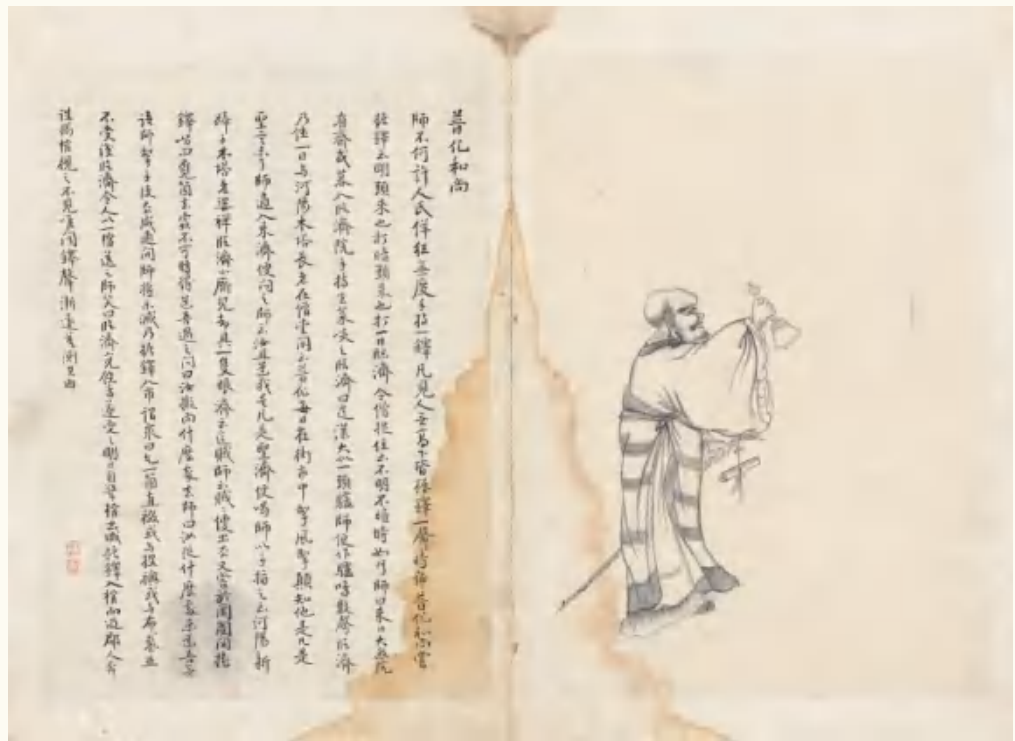 普化和尚
師不何許人氏佯狂無度手持一鐸凡見人無高下皆振鐸一聲時號普化和尚嘗
振鐸云明頭來也打暗頭來也打一日臨濟令僧捉住云不明不暗時如何師曰來日大悲院
有齋或暮入臨濟院手持生菜喫之臨濟曰這漢大似一頭驢師便作驢鳴數聲臨濟
乃住一日与河陽木塔長老在僧堂閒云普化每日在街市中掣風掣顛知他是凡是
聖言未了師適入來濟便問之師云汝且道我是凡是聖濟便喝師以手指之云河陽新
婦子木塔老婆禪臨濟小廝兒却具一隻眼濟云這賊師云賊々便出去又嘗於闤闠間搖
鐸唱曰覓箇去處不可得道吾遇之問曰汝擬向什麼處去師曰汝從什麼處來道吾無
語師掣手便去咸通間師將示滅乃振鐸入市謂衆曰乞一箇直裰或与披襖或与布裘並
不受後臨濟令人以一棺送之師笑曰臨濟兒饒舌遂受之明日自擎棺出城振鐸入棺而逝郡人奔
揭棺視之不見惟聞鐸聲漸遠莫測其由